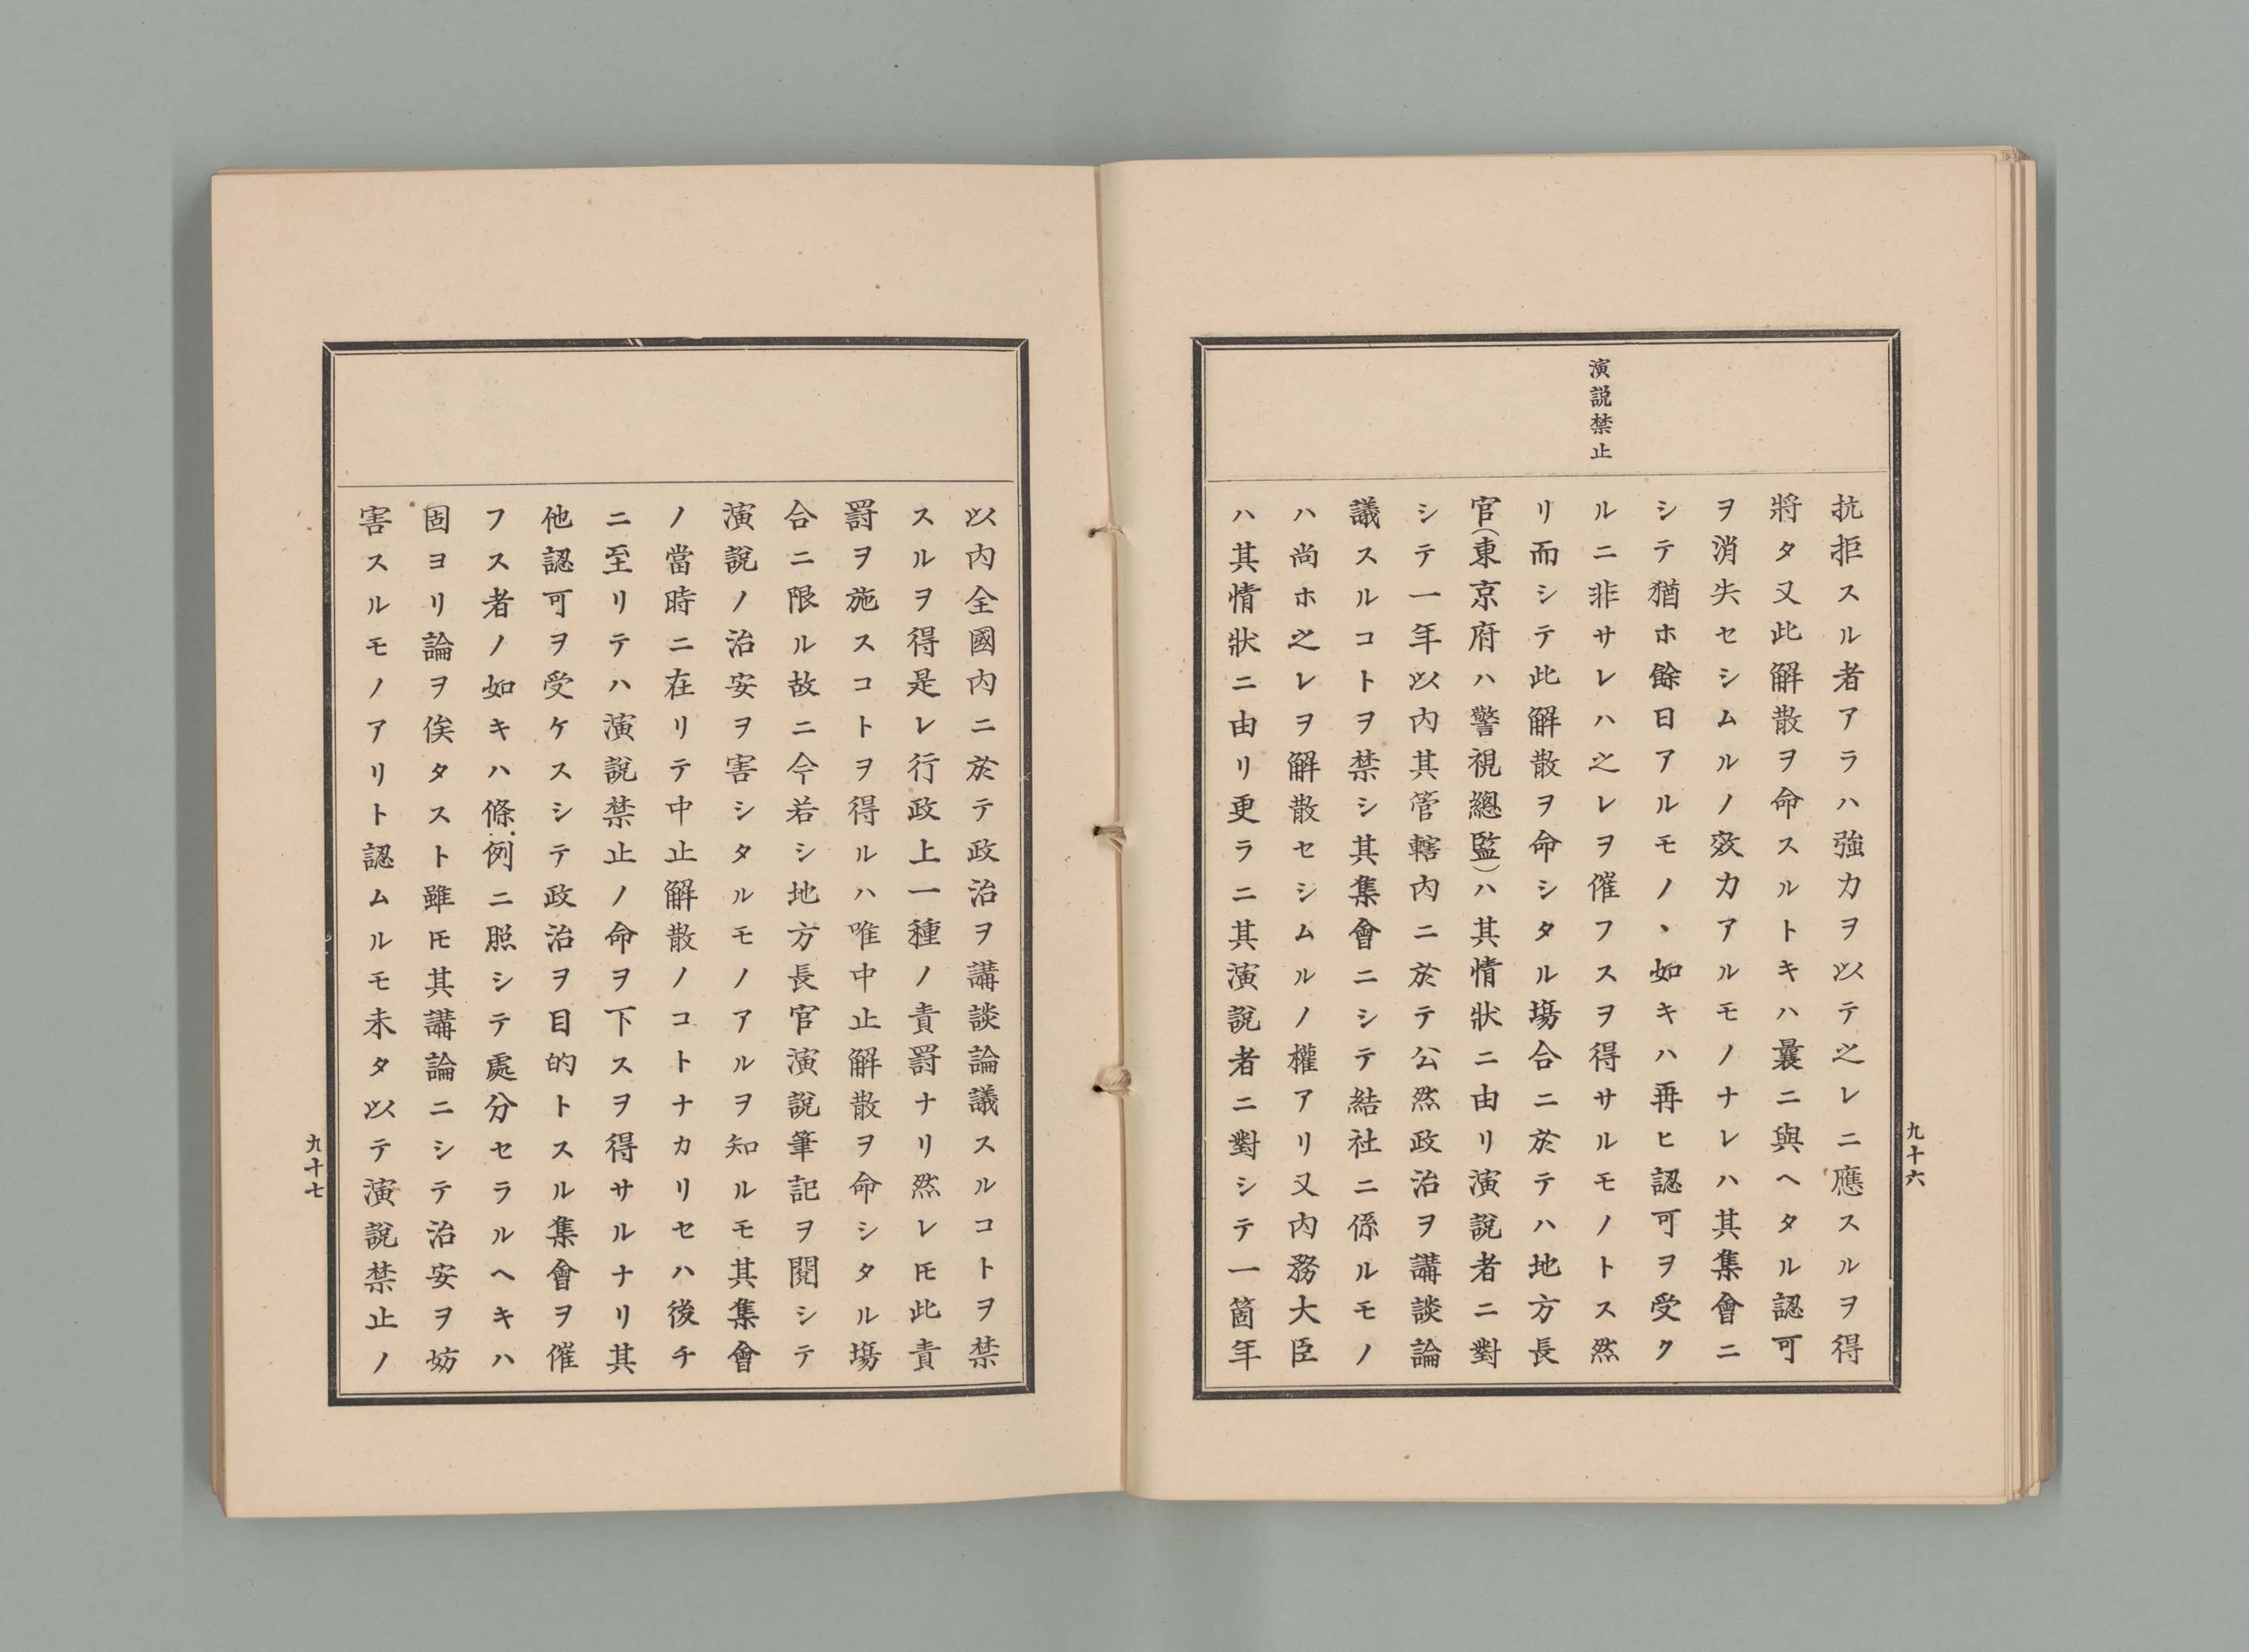 演説禁止
抗拒スル者アラハ強力ヲ以テ之レニ應スルヲ得
將タ又此解散ヲ命スルトキハ曩ニ與ヘタル認可
ヲ消失セシムルノ效力アルモノナレハ其集會ニ
シテ猶ホ餘日アルモノヽ如キハ再ヒ認可ヲ受ク
ルニ非サレハ之レヲ催フスヲ得サルモノトス然
リ而シテ此解散ヲ命シタル塲合ニ於テハ地方長
官(東京府ハ警視總監)ハ其情狀ニ由リ演說者ニ對
シテ一年以内其管轄内ニ於テ公然政治ヲ講談論
議スルコトヲ禁シ其集會ニシテ結社ニ係ルモノ
ハ尚ホ之レヲ解散セシムルノ權アリ又内務大臣
ハ其情狀ニ由リ更ラニ其演說者ニ對シテ一箇年
九十六
以内全國内ニ於テ政治ヲ講談論議スルコトヲ禁
スルヲ得是レ行政上一種ノ責罸ナリ然レ𪜈此責
罸ヲ施スコトヲ得ルハ唯中止解散ヲ命シタル塲
合ニ限ル故ニ今若シ地方長官演說筆記ヲ閱シテ
演說ノ治安ヲ害シタルモノアルヲ知ルモ其集會
ノ當時ニ在リテ中止解散ノコトナカリセハ後チ
ニ至リテハ演說禁止ノ命ヲ下スヲ得サルナリ其
他認可ヲ受ケスシテ政治ヲ目的トスル集會ヲ催
フス者ノ如キハ條例ニ照シテ處分セラルヘキハ
固ヨリ論ヲ俟タスト雖𪜈其講論ニシテ治安ヲ妨
害スルモノアリト認ムルモ未タ以テ演說禁止ノ
九十七